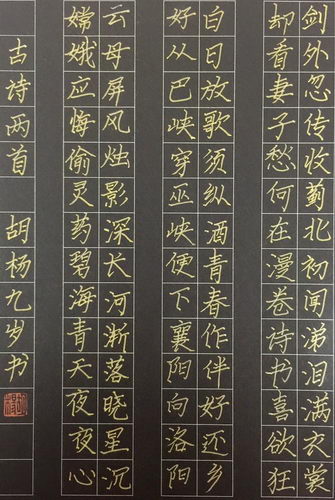 剑外忽传收蓟北初闻涕泪满衣裳
却看妻子愁何在漫卷诗书喜欲狂
白日放歌须纵酒青春作伴好还乡
好从巴峡穿巫峡便下襄阳向洛阳
云母屏风烛影深长河渐落晓星沉
嫦娥应悔偷灵药碧海青天夜夜心
古诗两首 胡杨九岁书